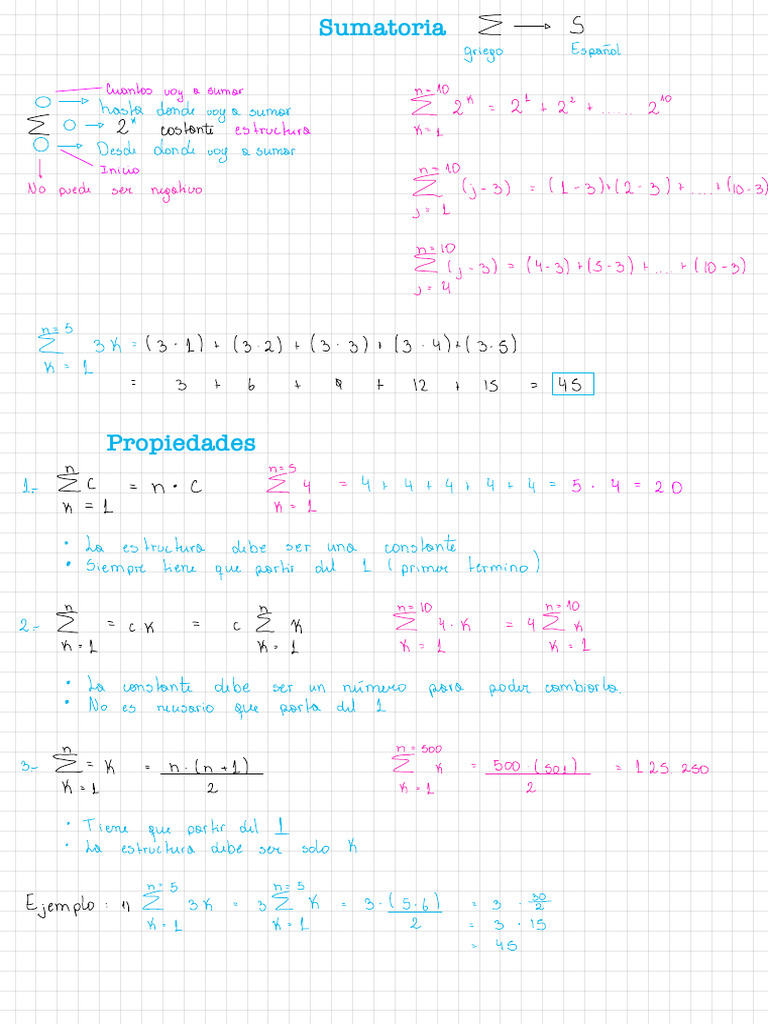 Sumatoria ∑ → S
griego Español
Cuantos voy a sumar
hasta donde voy a sumar
∑ → 2^K costante estructura
Desde donde voy a sumar
Inicio
No puede ser negativo
n=10 ∑ K=1 2^K = 2^1 + 2^2 + ...... 2^10
n=10 ∑ j=1 (j-3) = (1-3)+(2-3)+.....+(10-3)
n=10 ∑ j=4 (j-3) = (4-3)+(5-3)+.....+(10-3)
n=5 ∑ K=1 3K = (3·1) + (3·2) + (3·3) + (3·4)+(3·5)
= 3 + 6 + 9 + 12 + 15 = 45
Propiedades
1.- n ∑ K=1 C = n · C
n=5 ∑ K=1 4 = 4 + 4 + 4 + 4 + 4 = 5 · 4 = 20
• La estructura debe ser una constante
• Siempre tiene que partir del 1 (primer termino)
2.- n ∑ K=1 = c K = c n ∑ K=1 K
n=10 ∑ K=1 4·K = 4 n=10 ∑ K=1 K
• La constante debe ser un número para poder cambiarla.
• No es necesario que parta del 1
3.- n ∑ K=1 = K = n·(n+1) / 2
n=500 ∑ K=1 K = 500·(501) / 2 = 125.250
• Tiene que partir del 1
• La estructura debe ser solo K
Ejemplo: 1) n=5 ∑ K=1 3K = 3 n=5 ∑ K=1 K = 3·(5·6) / 2 = 3 · 30/2
= 3 · 15
= 45